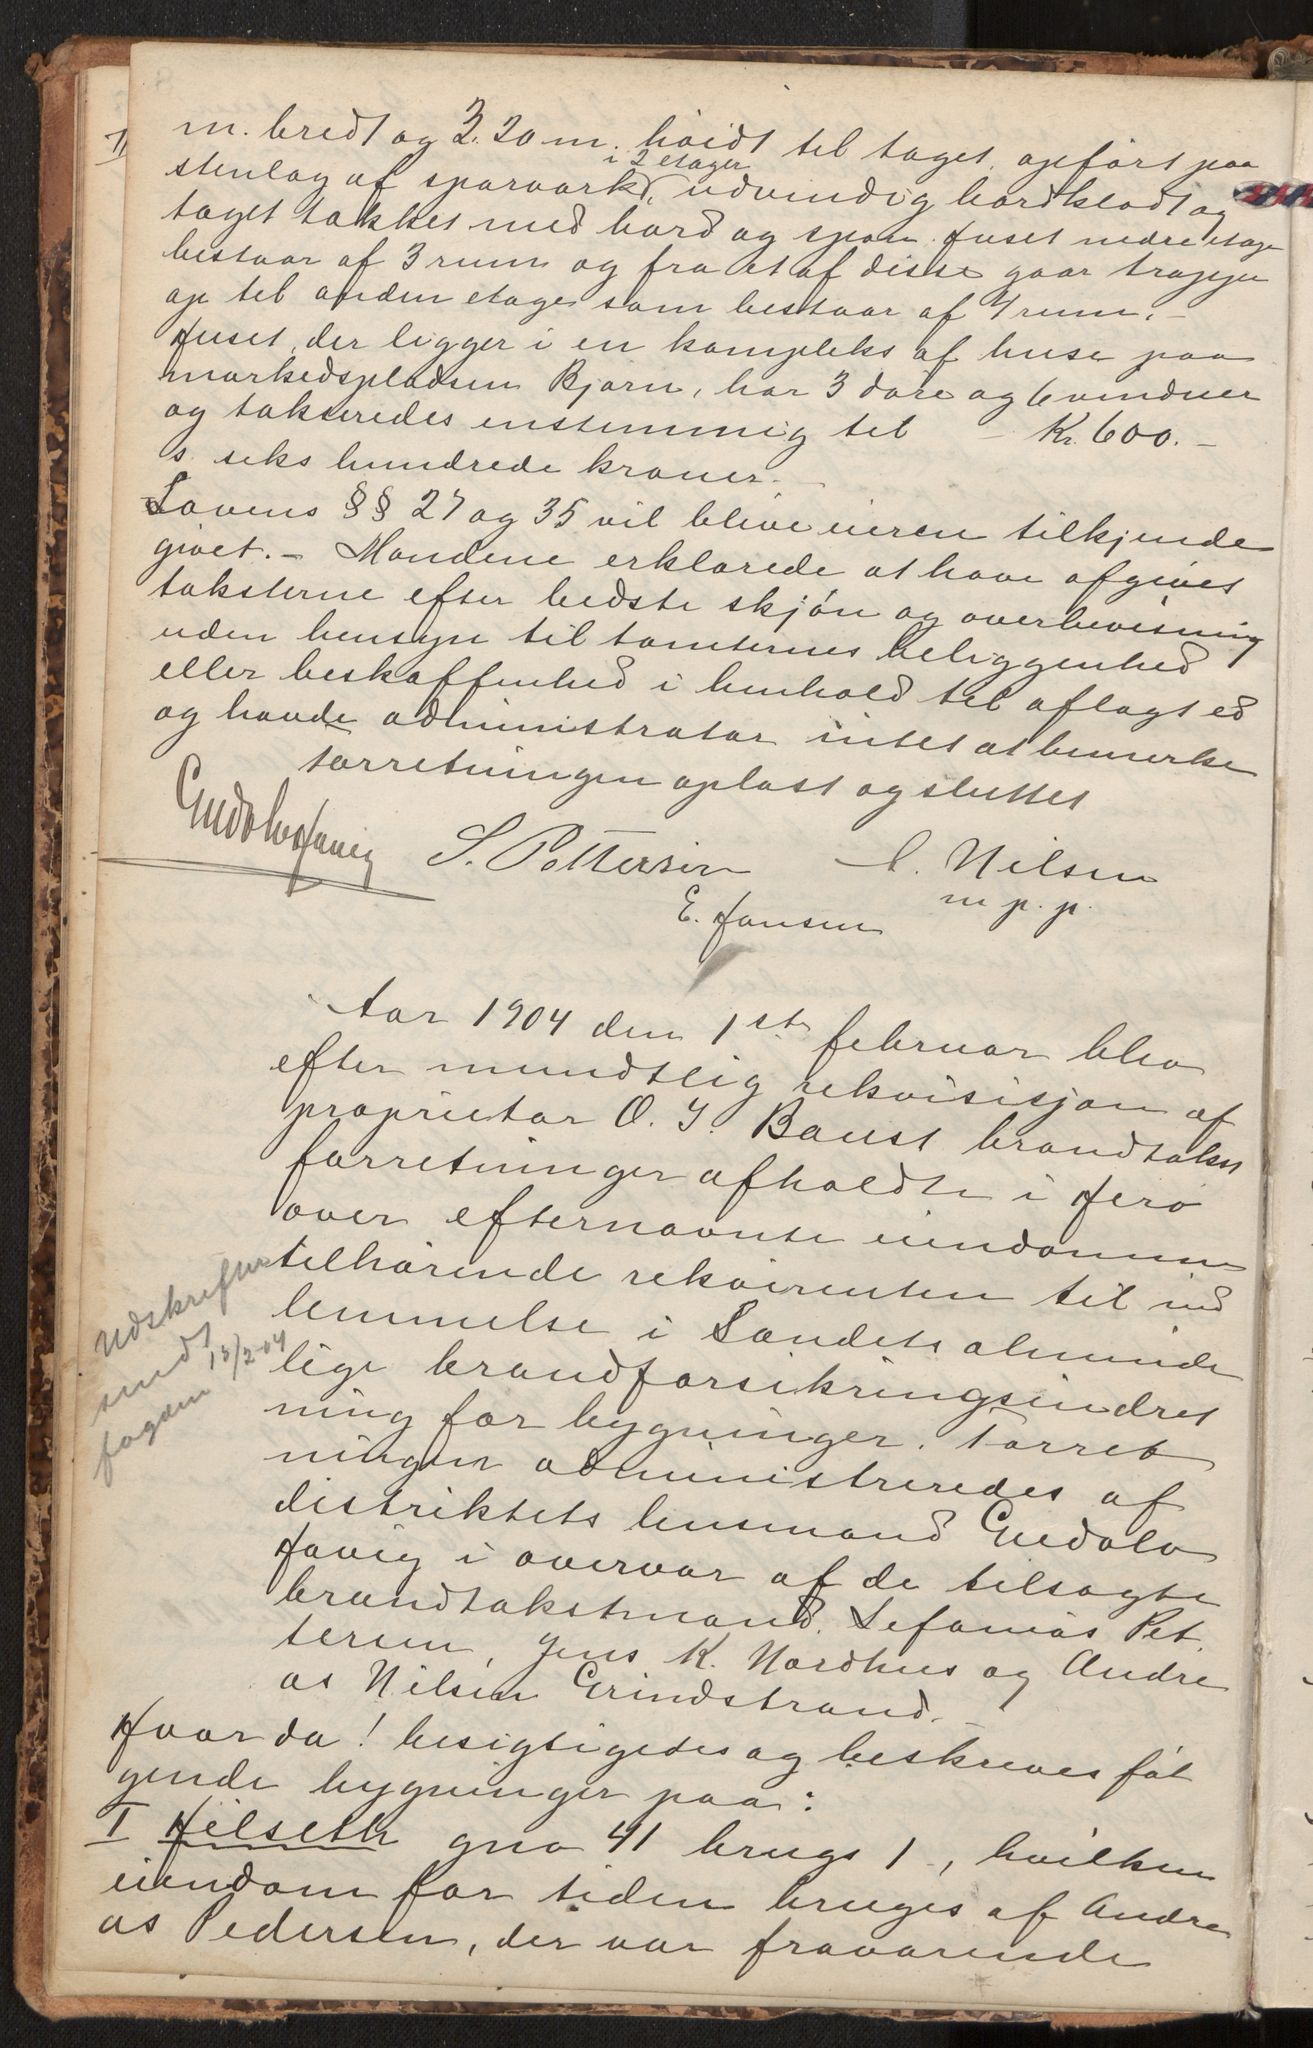 m. bredt og 3.20 m. høidt til taget, opført paa
stenlag af sparværk i 2 etager, udvendig bordklædt og
taget tækket med bord og spon. Huset nedre etage
bestaar af 3 rum og fra et af disse gaar trappe
op til anden etage som bestaar af 4 rum. –
Huset, der ligger i en kompleks af huse paa
markedspladsen Bjørn, har 3 døre og 6 vinduer
og takseredes enstemmig til – Kr. 600. –
s. seks hundrede kroner. –
Lovens §§ 27 og 35 vil blive eieren tilkjende
givet. – Mændene erklærede at have afgivet
taksterne efter bedste skjøn og overbevisning
uden hensyn til tomternes beliggenhed
eller beskaffenhed i henhold til aflagt ed
og havde administrator intet at bemerke
Forretningen oplæst og sluttet
S. Pettersen A. Nilsen
m. p. p.
E. Jansen
Aar 1904 den 1ste februar blev
efter mundtlig rekvisisjon af
proprietær O. J. Baust brandtakst
forretninger afholdte i Herø
over efternævnte eiendomme
tilhørende rekvirenten til ind
lemmelse i Landets alminde
lige brandforsikringsindret
ning for bygninger. Forret
ningen administreredes af
distriktets lensmand Gudolv
Høvig i overvær af de tilsagte
brandtakstmænd. Sefanias Pet
tersen, Jens K. Nordhus og Andre
as Nilsen Grindstrand. –
Hvor da! besigtigedes og beskreves føl
gende bygninger paa:
I Hilseth gno 41 brugs 1, hvilken
eiendom for tiden bruges af Andre
as Pedersen, der var fraværende
Udskrifter
sendt
fogden 13/2-04
II